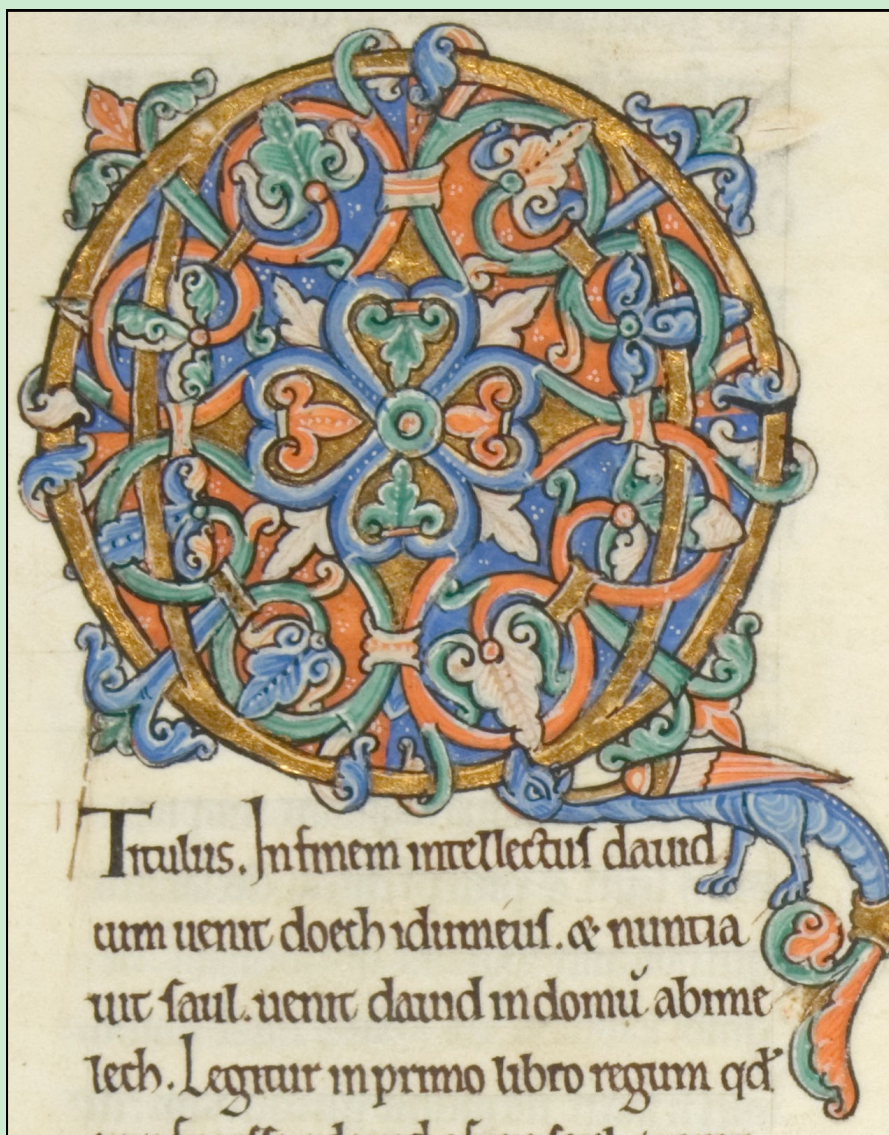 Q
Titulus. In finem intellectus dauid
cum uenit doech idumeus. & nuntia
uit saul. uenit dauid in domū abime
lech. Legitur in primo libro regum qđ